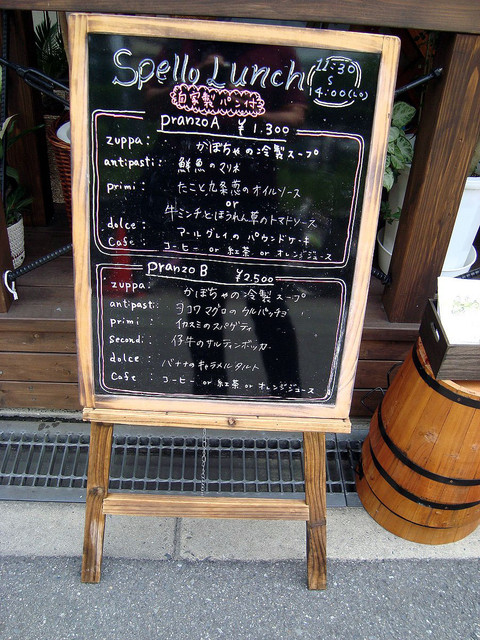 Spello Lunch
11:30
S
14:00(LO)
自家製パン付
pranzo A ¥1.300
zuppa: かぼちゃの冷製スープ
antipasti: 鮮魚のマリネ
primi: たこと九条葱のオイルソース
or
牛ミンチとほうれん草のトマトソース
dolce: アールグレイのパウンドケーキ
Cafe: コーヒー or 紅茶 or オレンジジュース
pranzo B ¥2.500
zuppa: かぼちゃの冷製スープ
antipasti: ヨコワマグロのカルパッチョ
primi: イカスミのスパゲティ
Second: 仔牛のサルティンボッカ
dolce: バナナのキャラメルタルト
Cafe コーヒー or 紅茶 or オレンジジュース